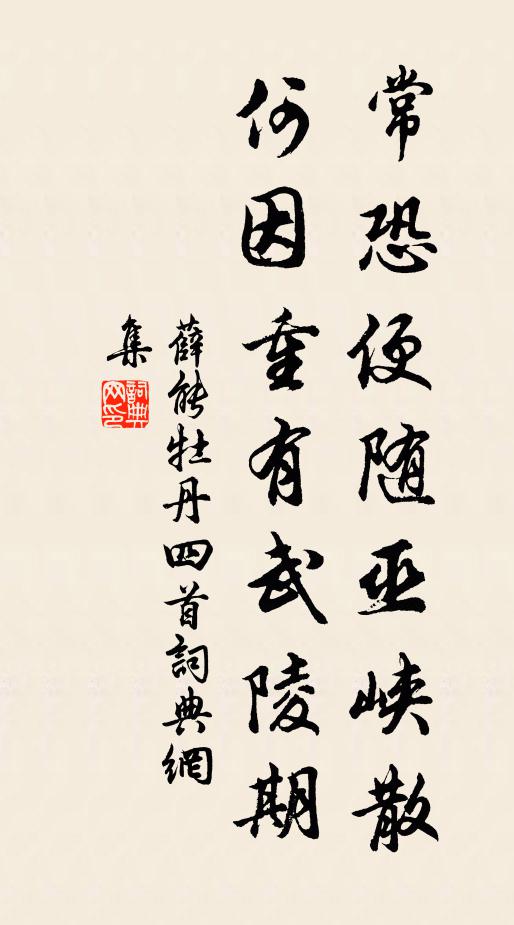 常恐便随巫峡散
何因重有武陵期
薛能牡丹四首詞典網
集
詞典
网印